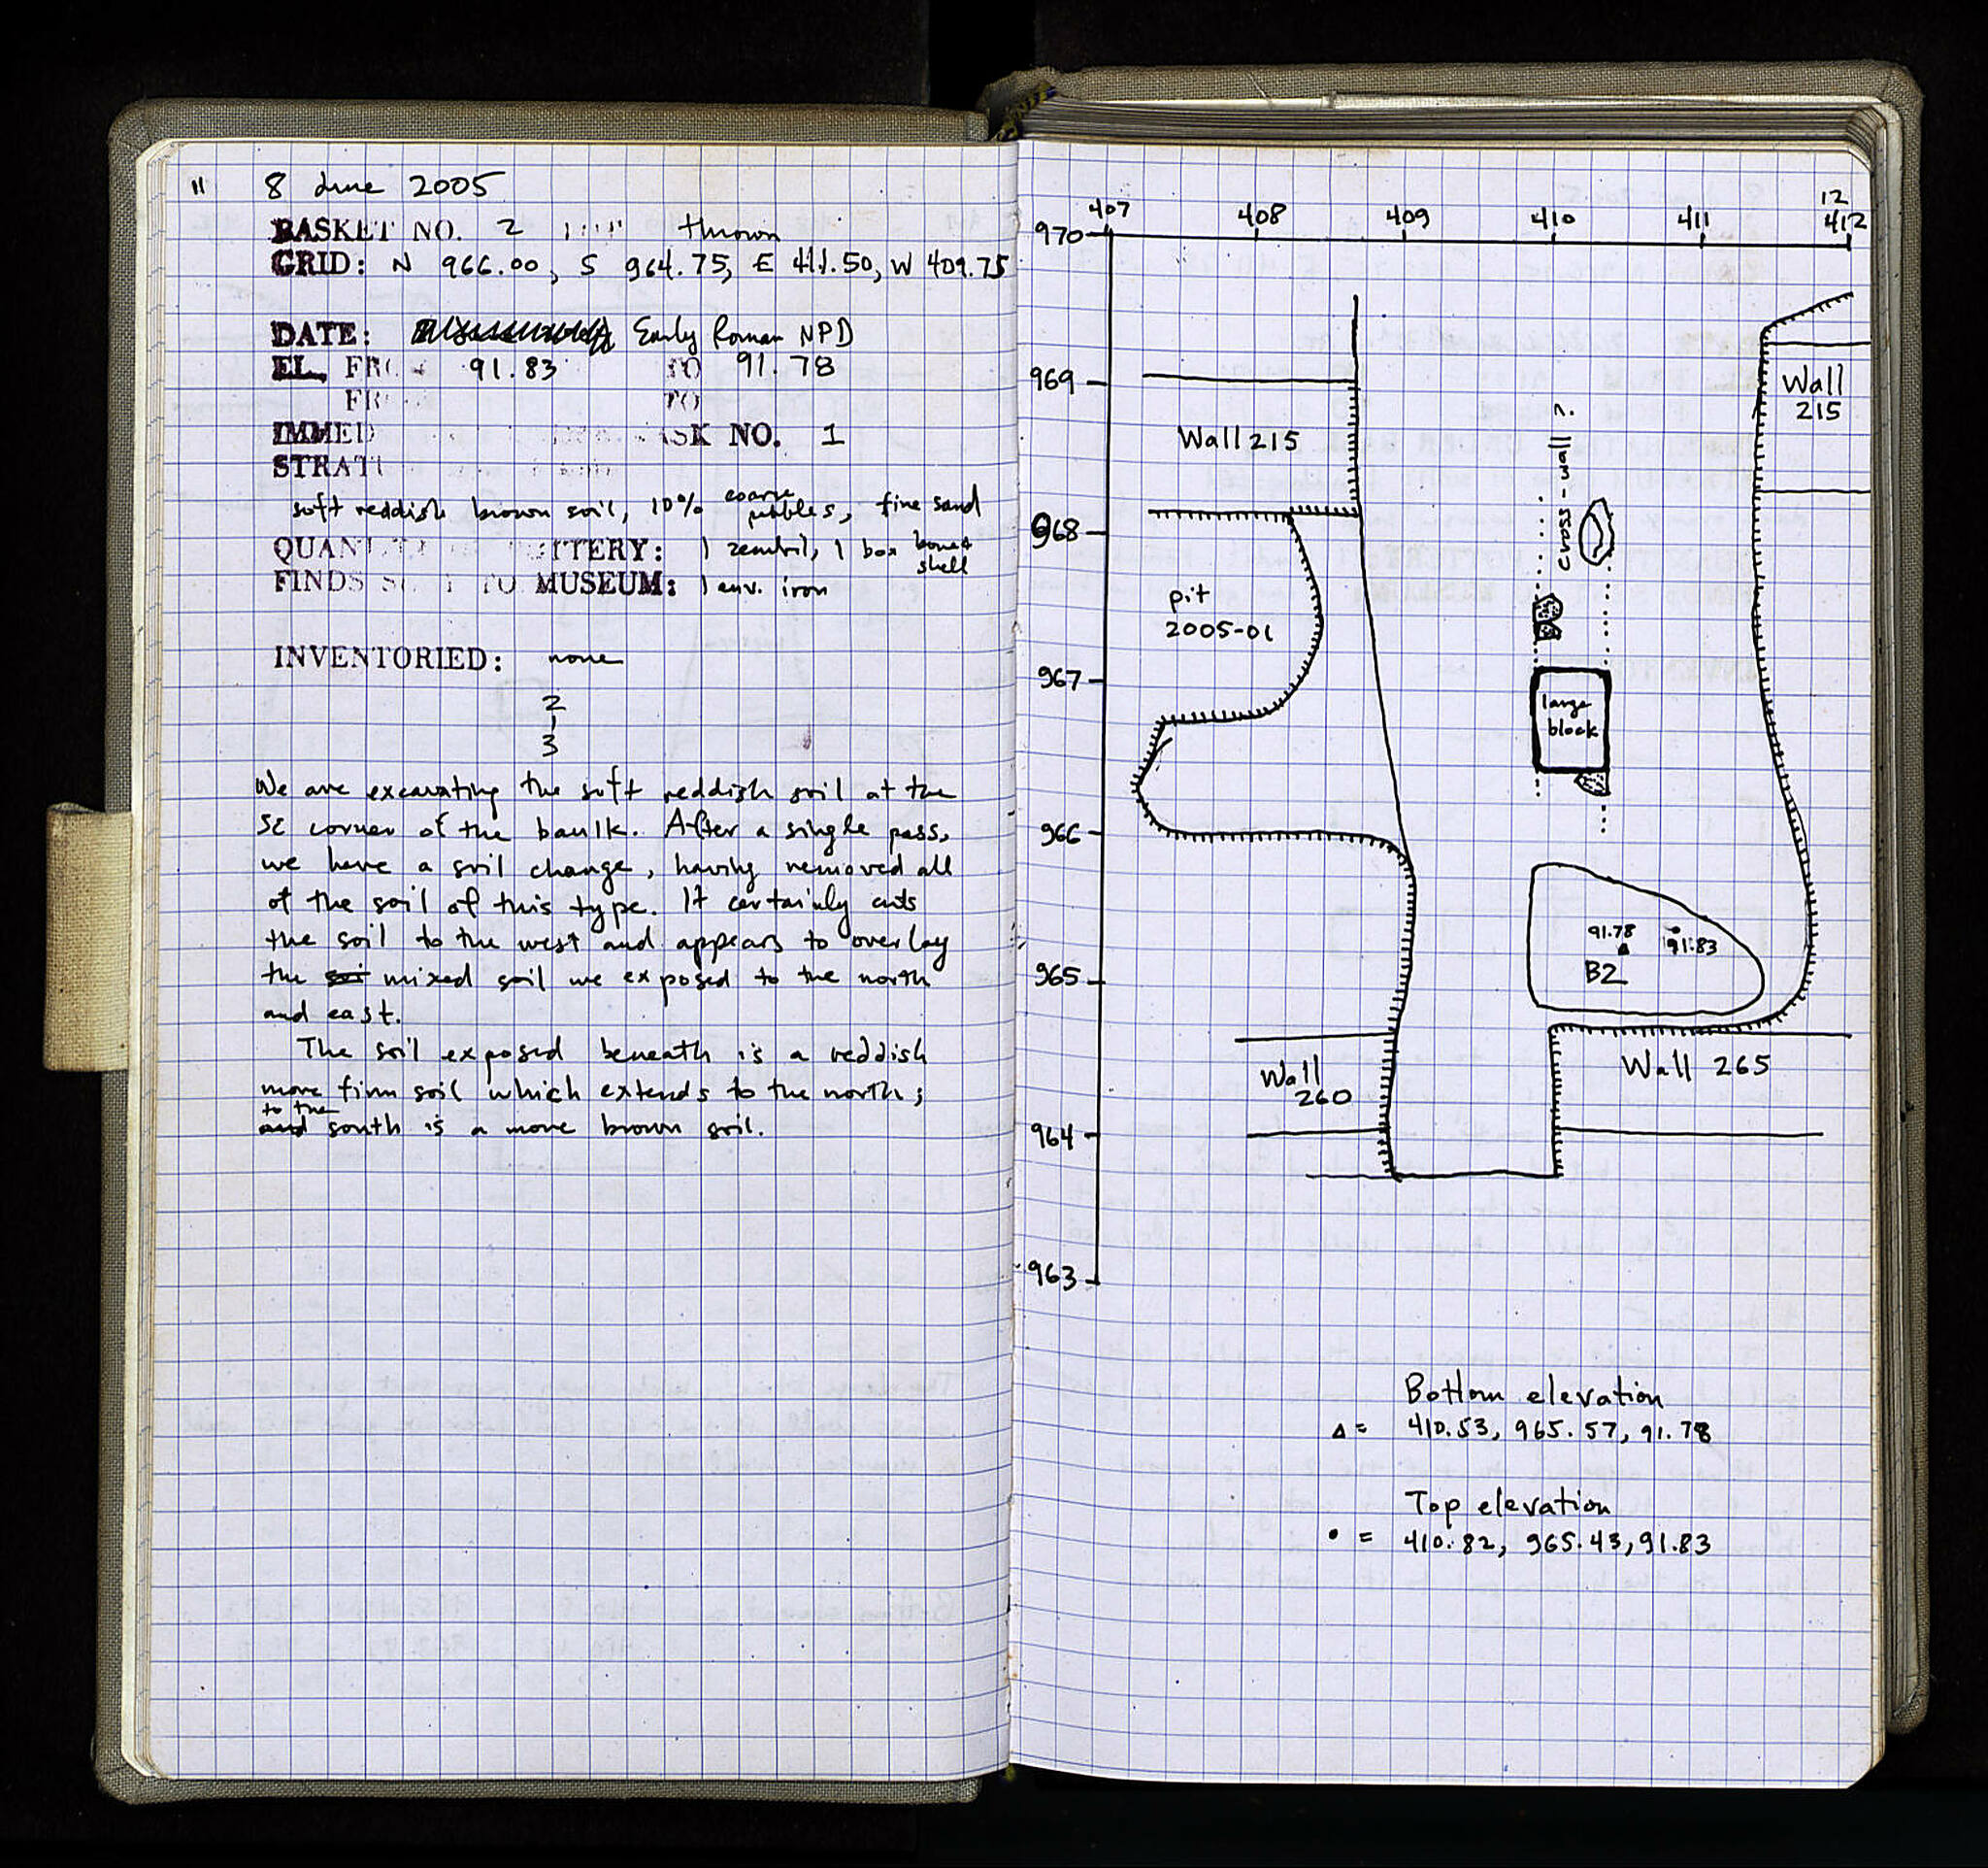 11 8 June 2005
BASKET NO. 2 thrown
GRID: N 966.00, S 964.75, E 411.50, W 409.75
DATE: Early Roman NPD
EL. FR 91.83 TO 91.78
FR TO
IMMED ASK NO. 1
STRAT
soft reddish brown soil, 10% coarse pebbles, fine sand
QUAN TTERY: 1 zembil, 1 box bone & shell
FINDS S T TO MUSEUM: 1 env. iron
INVENTORIED: none
2
3
We are excavating the soft reddish soil at the
SE corner of the baulk. After a single pass,
we have a soil change, having removed all
of the soil of this type. It certainly cuts
the soil to the west and appears to overlay
the soi mixed soil we exposed to the north
and east.
The soil exposed beneath is a reddish
more firm soil which extends to the north;
and to the south is a more brown soil.
12
407 408 409 410 411 412
970
969
968
967
966
965
964
963
Wall 215
Wall
215
cross-wall?
pit
2005-01
large
block
91.78 91.83
B2
Wall
260
Wall 265
Bottom elevation
Δ = 410.53, 965.57, 91.78
Top elevation
• = 410.82, 965.43, 91.83